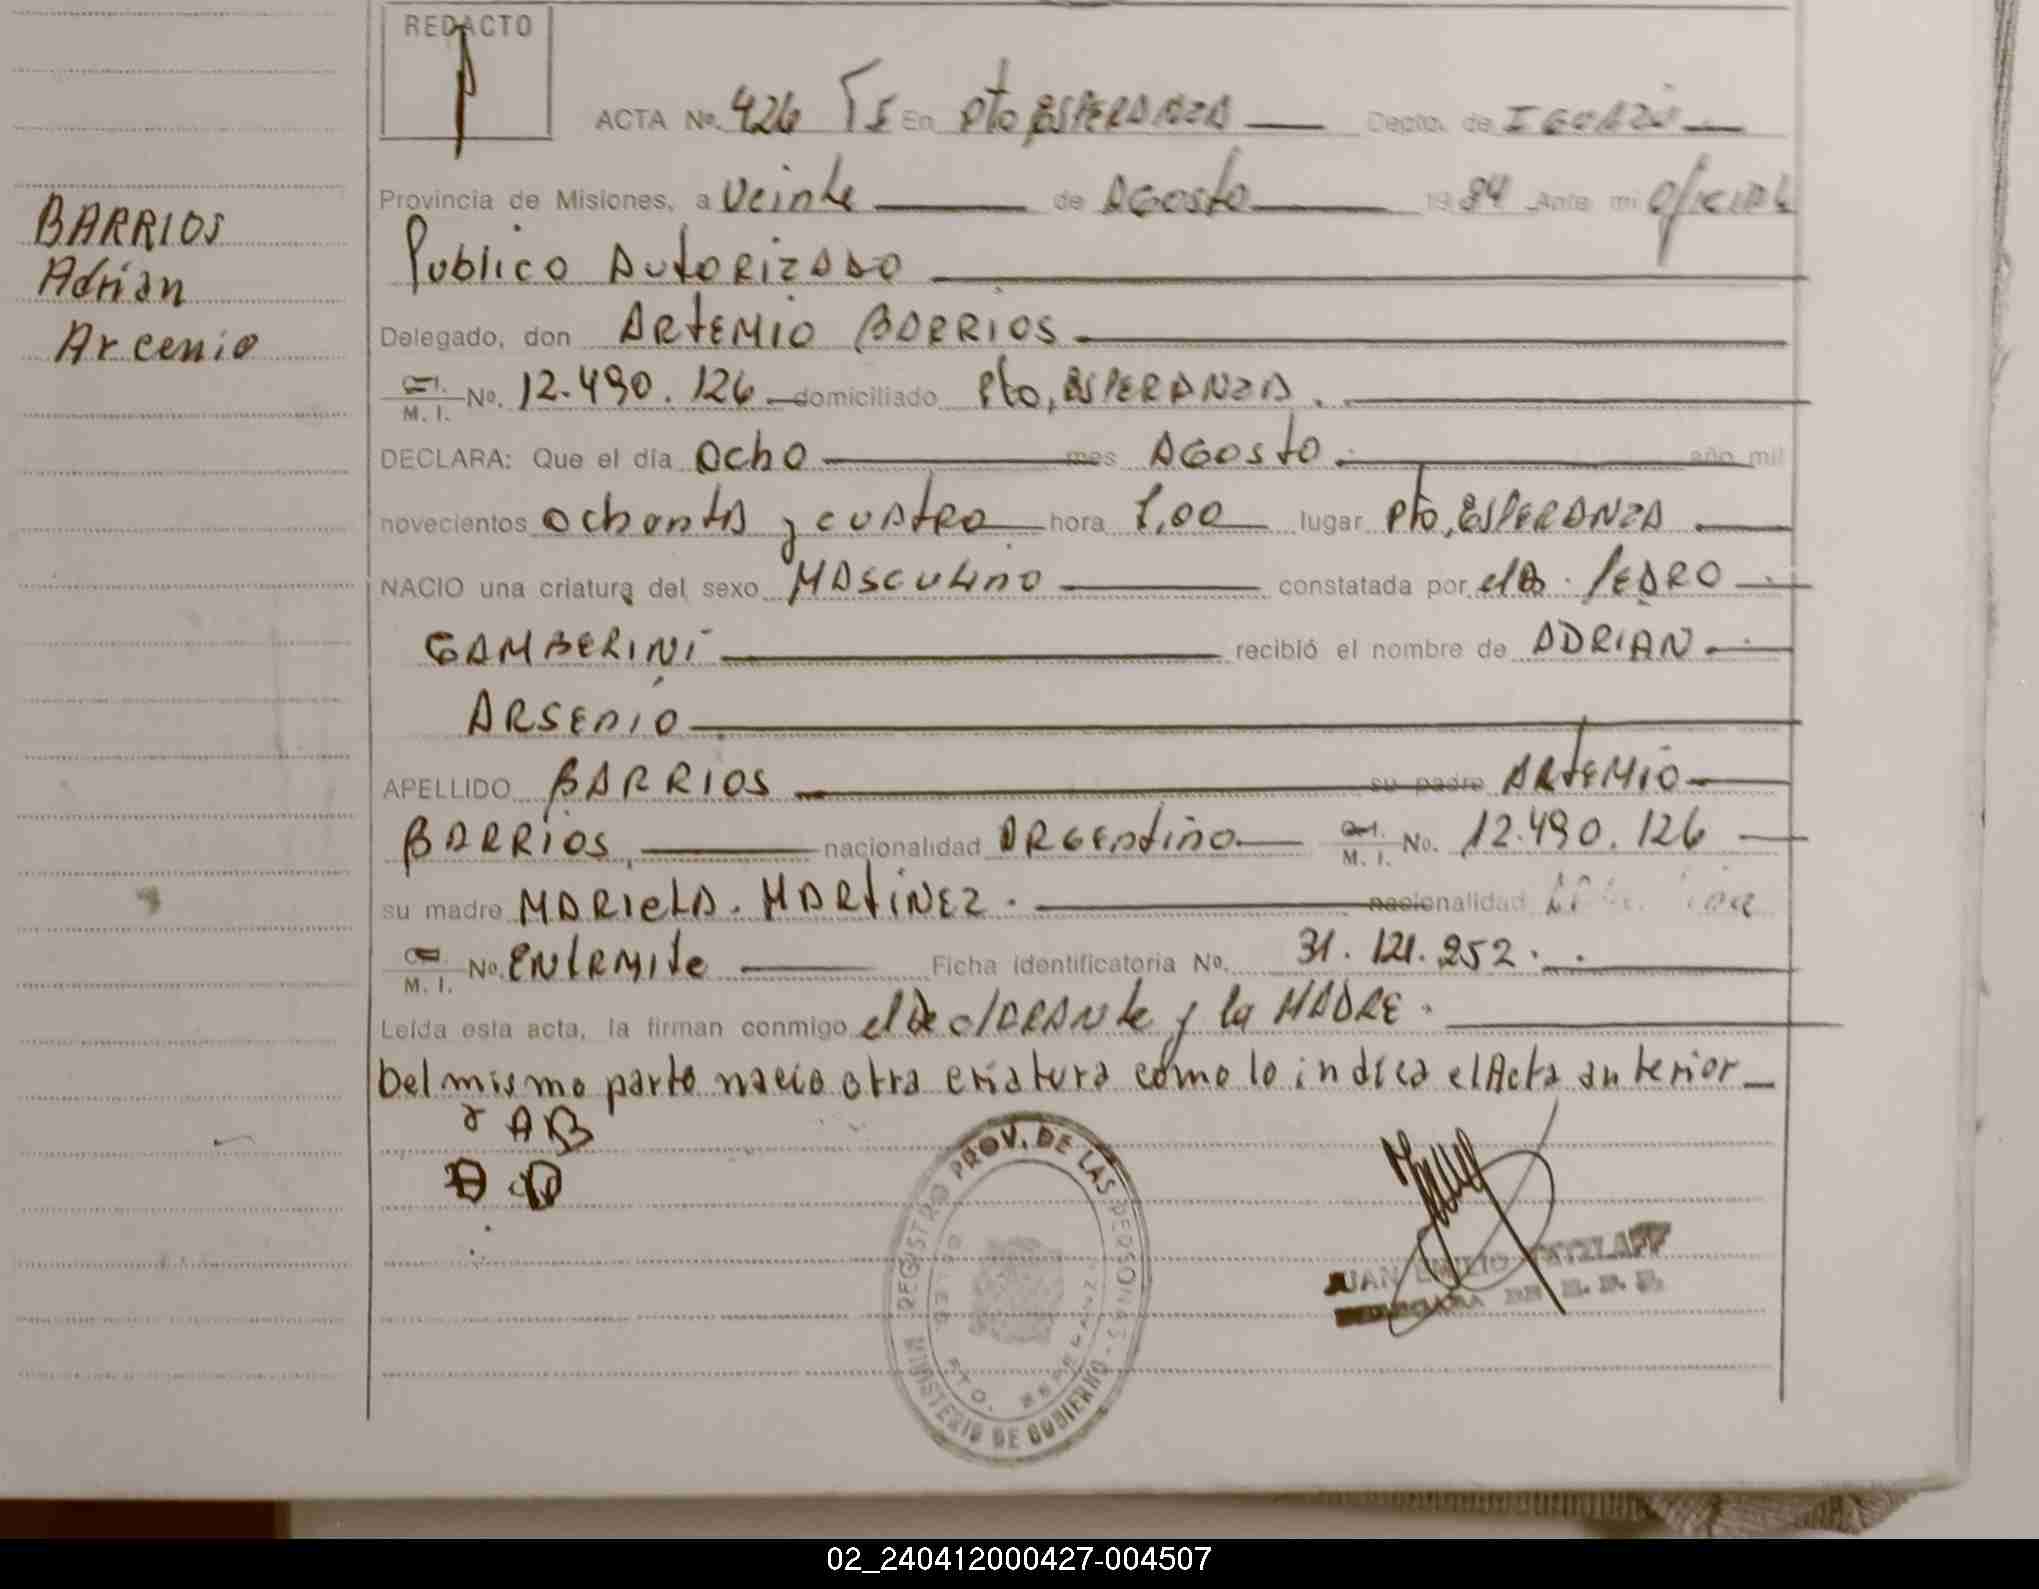 REDACTO
ACTA No. 426 En Pto ESPERANZA Depto. de IGUAZU
Provincia de Misiones, a Veinte de AGosto 1984 Ante mi Oficial
BARRIOS
Publico AutoRiZADO
Adrian
Delegado, don ARtEMiO BARRiOS
Arcenio
M. I. No. 12.490.126 domiciliado Pto, ESPERANZA.
DECLARA: Que el día ocho mes AGosto. año mil
novecientos ochenta y cuAtro hora 1,00 lugar Pto, ESPERANZA
NACIO una criatura del sexo MASculino constatada por el PEDRO
GAMBERINI recibió el nombre de ADRIAN
ARSENiO
APELLIDO BARRIOS su padre ARtEMiO
BARRiOS, nacionalidad ARGENtiNo M. I. No. 12.490.126
su madre MARIELA. MARtiNEZ. nacionalidad
M. I. No. ENtRMite Ficha identificatoria No. 31.121.252.
Leída esta acta, la firman conmigo el DeclARANte y la MADRE.
Del mismo parto nacio otra criatura como lo indica el Acta anterior
AB
REGISTRO PROV. DE LAS PERSONAS - MINISTERIO DE GOBIERNO
PTO. ESPERANZA
JUAN EMILIO
02_240412000427-004507